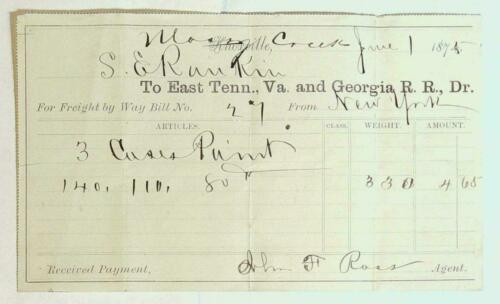 Mossy Creek June 1 1875
Knoxville,
S. E Rankin
To East Tenn., Va. and Georgia R. R., Dr.
For Freight by Way Bill No. 27. From New York
ARTICLES. CLASS. WEIGHT. AMOUNT.
3 Cases Paint
140, 110, 80 330 4 65
Received Payment, John F Ross Agent.